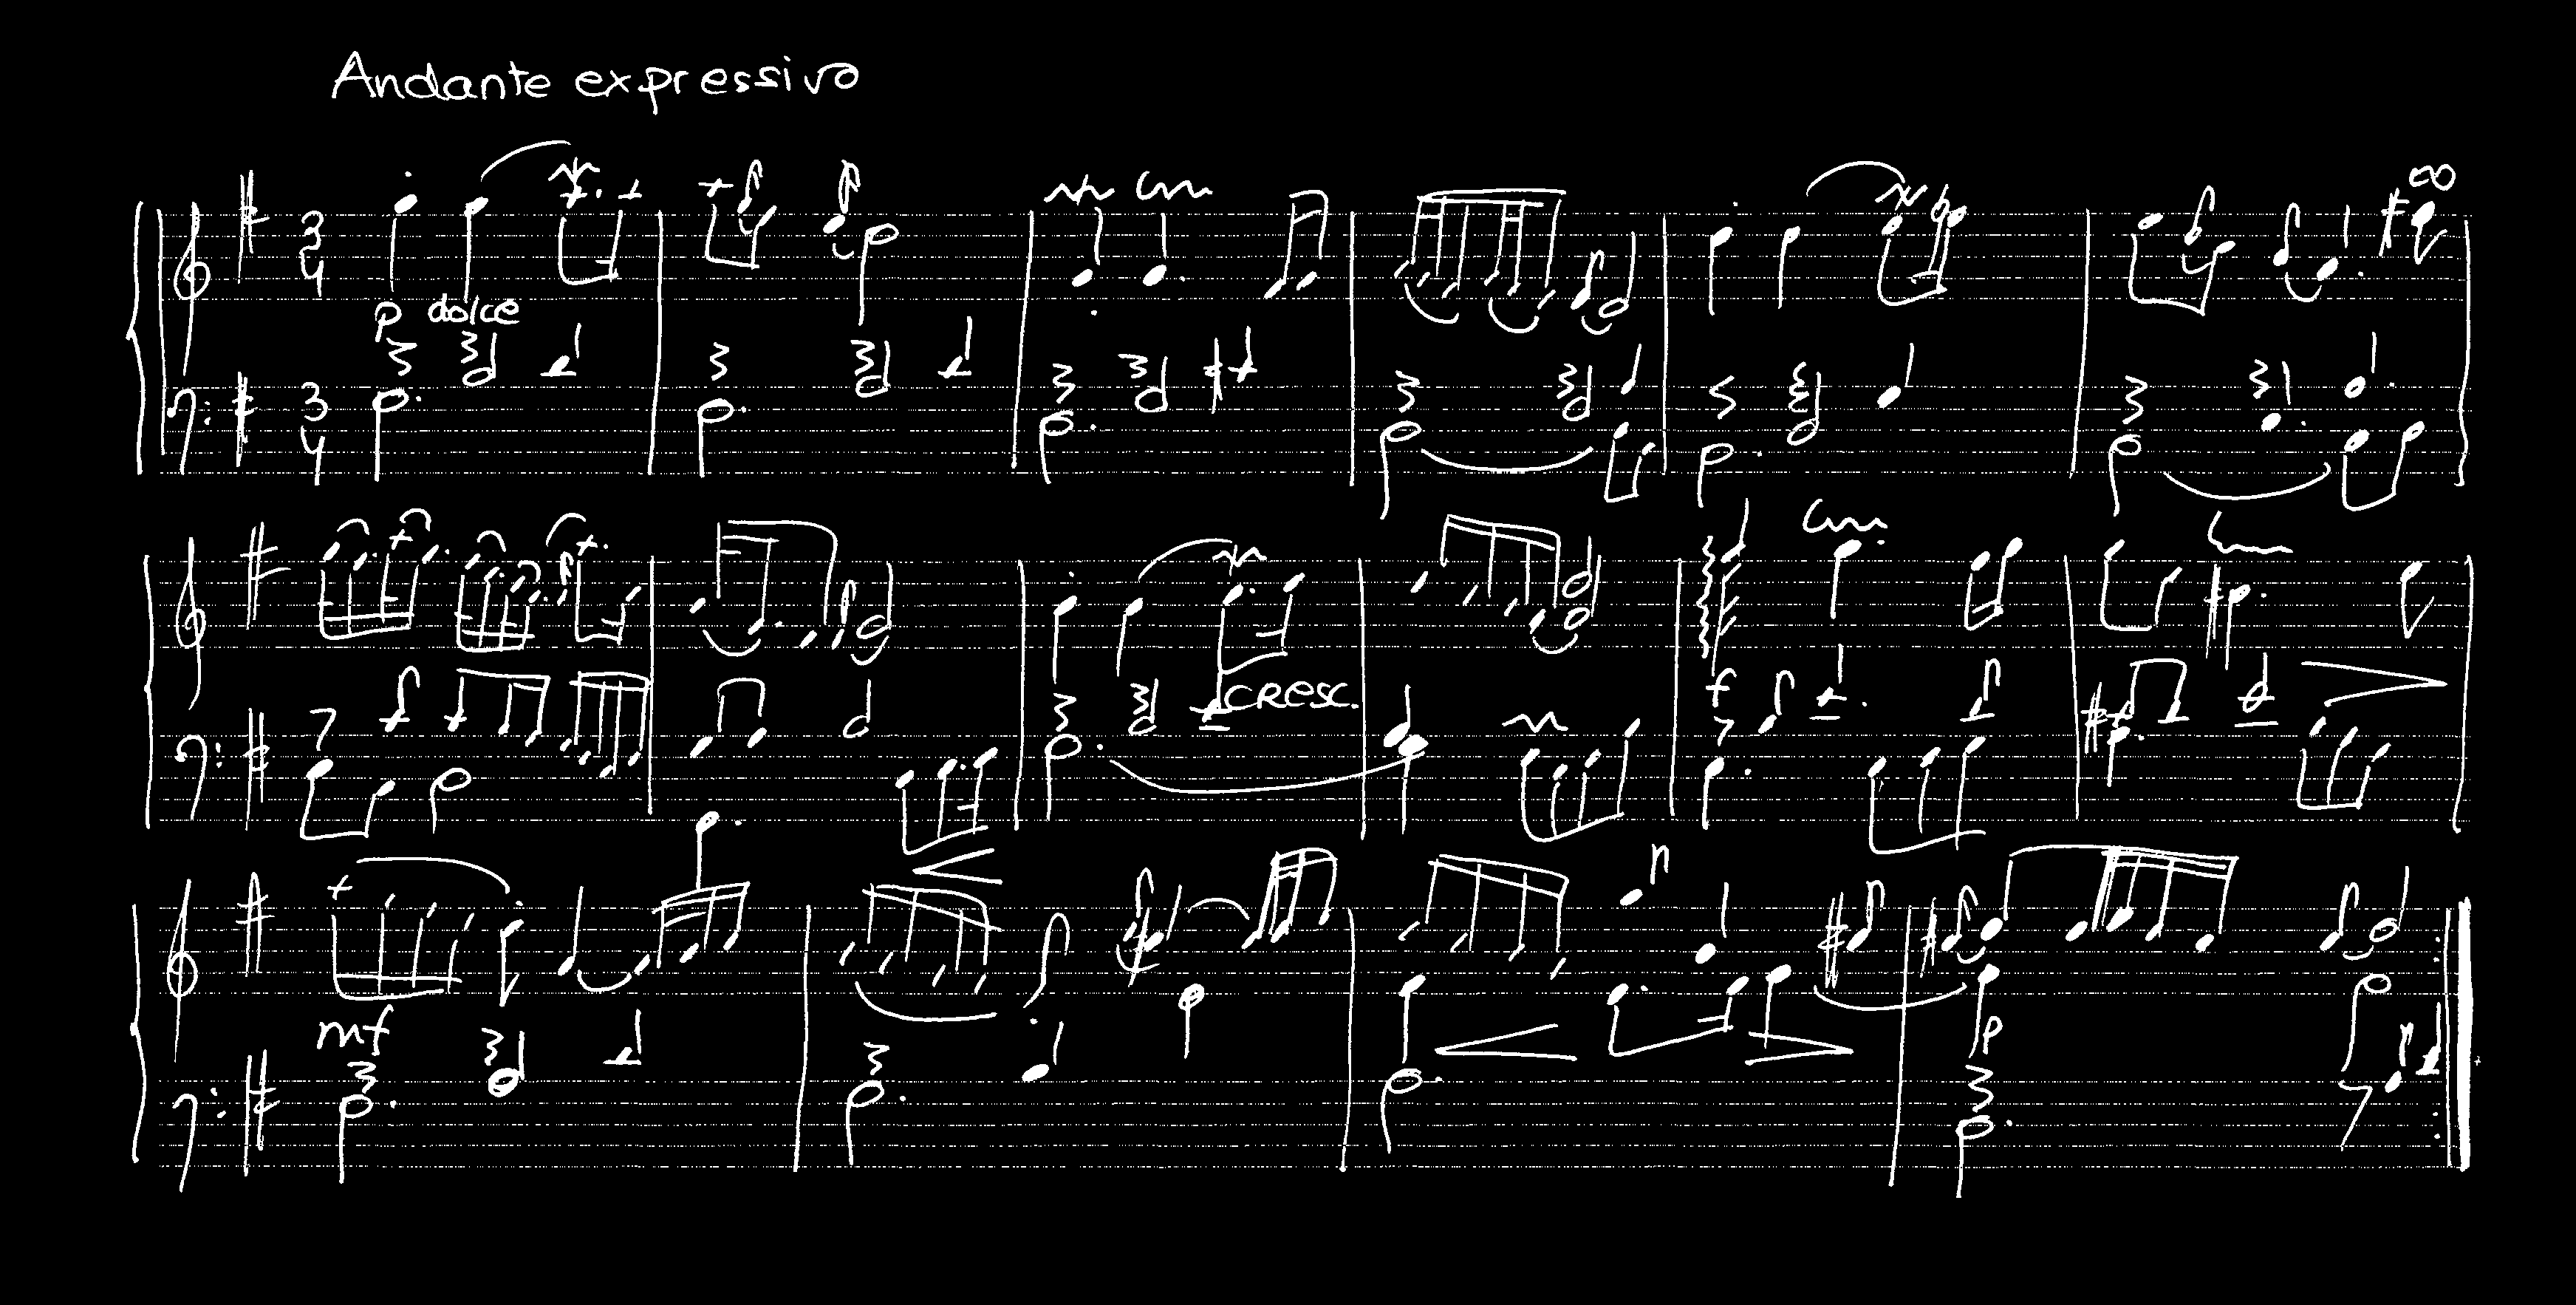 Andante expressivo
3
4
p dolce
3
4
cresc.
f
mf
p